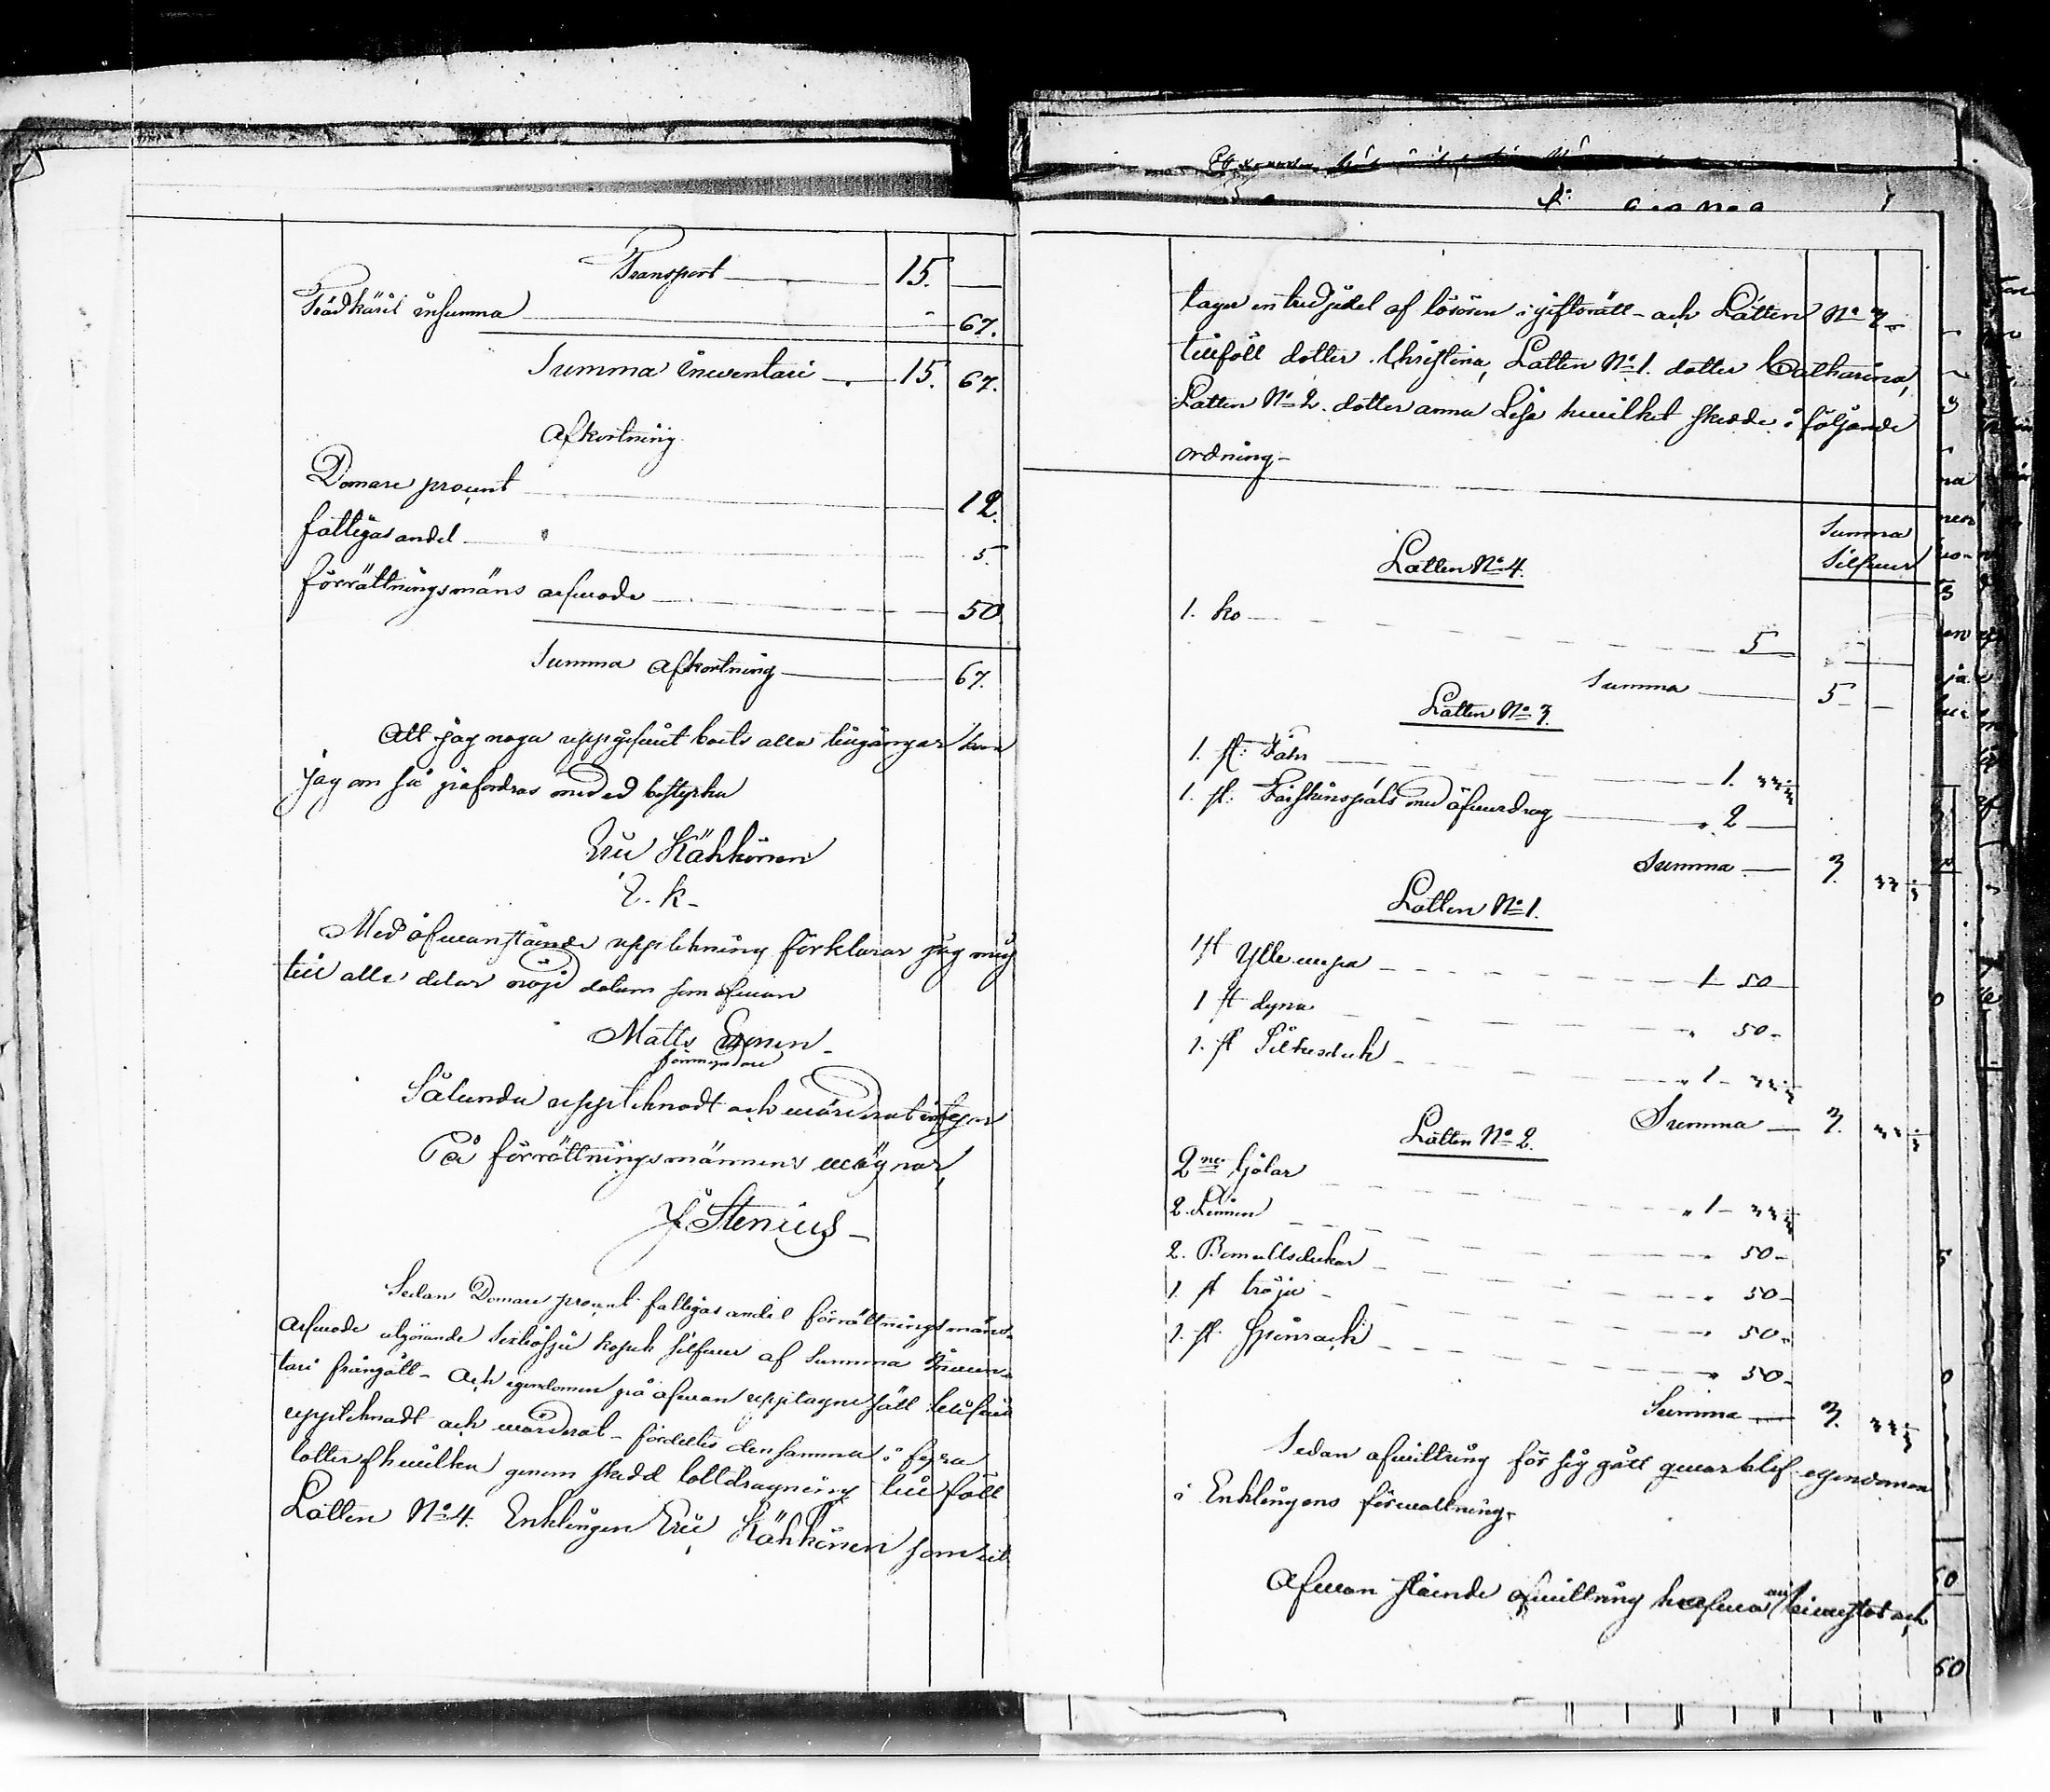 Transport 15. —
Trädkäril insumma - 67.
Summa Inventari 15. 67.
Afkortning
Domare procent 12.
fattigas andel 5.
förrättningsmäns arfwode 50
Summa Afkortning 67.
Att jag noga uppgifwit boets alla tillgångar kan
jag om så påfordras med ed bestyrka
Eric Kähkönen
E. k.
Med ofwanstående uppteckning förklarar jag mig
till alla delar nöjd datum som ofwan
Matts
förmyndare
Sålunda upptecknadt och wärderat intygar
På förrättningsmännens wägnar,
J. Stenius
Sedan Domare procent fattigas andel förrättningsmäns
arfwode utgörande sextiosju kopek silfwer af Summa Inwen-
tari frångått - Och egendomen på ofwan upptagne sätt blifwit
upptecknadt och wärderat - fördeltes densamma i fyra
lotter af hwilka genom skedd lottdragning tillföll
Lotten No 4. Enklingen Eric Kähkönen som ut
tager en tredjedel af lösören i giftorätt - och Lotten No 3
tillföll dotter Christina, Lotten No 1. dotter Catharina,
Lotten No 2. dotter Anna Lisa hwilket skedde i följande
ordning -
Summa
Silfwer
Lotten No 4.
1. ko 5 —
Summa 5 —
Lotten No 3.
1. st: Fåhr 1. 33⅓
1. st: Fårskinspäls med öfwerdrag " 2 —
Summa 3. 33⅓
Lotten No 1.
1 st Ylle wepa 1 50
1 st dyna " 50
1. st Silkesduk " 1 - 33⅓
Summa 3. 33⅓
Lotten No 2.
2ne kjolar " 1 - 33⅓
2. Linnen " 50
2. Bomullsdukar " 50
1. st tröja " 50
1. st. Spinrock " 50
Summa 3. 33⅓
Sedan afwittring för sig gått qwarblef egendomen
i Enklingens förwaltning.
Ofwan stående afwittring hafwa wi biwistat och